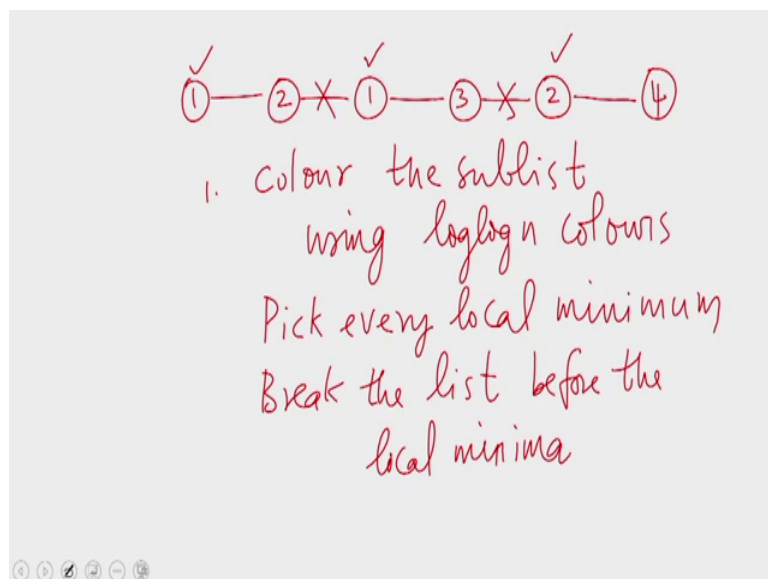 1 2 1 3 2 4
1. Colour the sublist
using loglogn colours
Pick every local minimum
Break the list before the
local minima